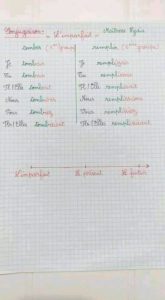 Conjugaison: L'imparfait Maîtresse
tomber (1er groupe) remplir (2ème groupe)
Je tombais Je remplissais
Tu tombais Tu remplissais
Il/Elle tombait Il/Elle remplissait
Nous tombions Nous remplissions
Vous tombiez Vous remplissiez
Ils/Elles tombaient Ils/Elles remplissaient
L'imparfait Le présent Le futur